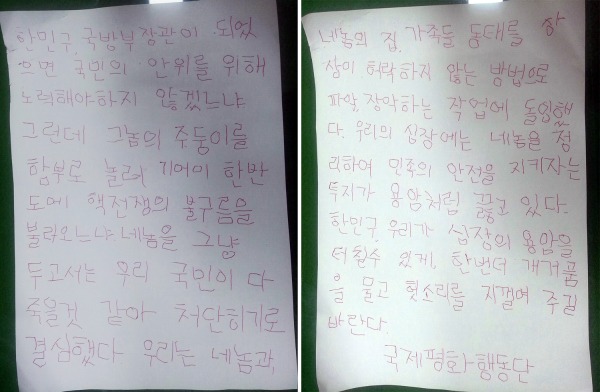 한민구. 국방부장관이 되었
으면 국민의 안위를 위해
노력해야하지 않겠느냐
그런데 그놈의 주둥이를
함부로 놀려 기어이 한반
도에 핵전쟁의 불구름을
불러오느냐. 네놈을 그냥
두고서는 우리 국민이 다
죽을것 같아 처단하기로
결심했다 우리는 네놈과,
네놈의 집, 가족들 동태를 상
상이 허락하지 않는 방법으로
파악, 장악하는 작업에 돌입했
다. 우리의 심장에는 네놈을 정
리하여 민족의 안전을 지키자는
투지가 용암처럼 끓고 있다.
한민구. 우리가 심장의 용암을
터칠수 있게, 한번더 개거품
을 물고 헛소리를 지껄여 주길
바란다.
국제평화행동단